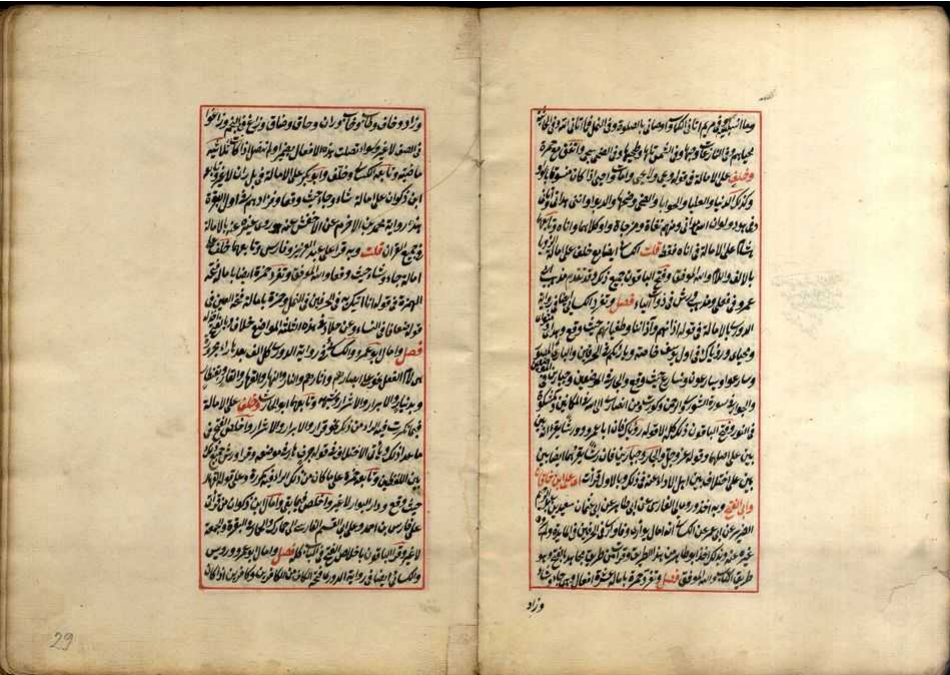 وما انسانيه وفي مريم اتاني الكتاب واوصاني بالصلوة وفي النمل فما اتاني الله وفي الجاثية
محياهم وفي النازعات دحيها وفي الشمس تليها وطحيها وفي الضحى سجى واتفق مع حمزة
وخلف على الامالة في قوله ويحيى ولا يحيى وامات واحيى اذا كان منسوقا بالواو
وكذلك الدنيا والعليا والحوايا والضحى وضحيها والربوا وانني هداني واتاني
في هود ولو ان الله هداني ومنهم تقاة ومزجاة واو كلاهما واناه وتابعهما
هشام على الامالة في اناه فقط قلت الكسائي ايضا مع خلف على امالة الرؤيا
بالالف واللام والله الموفق وفتح الباقون جميع ذلك وقد تقدم مذهب ابي
عمرو في فعلى ومذهب ورش في ذوات الياء فصل وتفرد الكسائي في رواية
الدوري بالامالة في قوله اذانهم واذاننا وطغيانهم حيث وقع وهداي
ومحياي ورؤياك في اول يوسف خاصة وبارئكم في الحرفين والبارئ المصور
وسارعوا ويسارعون ونسارع حيث وقع والجار في الموضعين وجبارين
والجوار في سورة الشورى والرحمن وكورت ومن انصاري الى الله في المكانين وكمشكوة
في النور وفتح الباقون ذلك كله الا قوله رؤياك فان ابا عمرو وورشا يقرآنه بين
بين على اصلهما وقوله عز وجل والجار وجبارين فان ورشا يقرؤهما ايضا بين
بين على اختلاف بين اهل الاداء عنه في ذلك وبالاول قرات على ابن خاقان
وابي الفتح وبه اخذ وروى الفارسي عن ابي طاهر عن ابي عثمان سعيد بن عبد الرحيم
الضرير عن ابي عمر عن الكسائي انه امال يواري وفاواري في الحرفين في المائدة ولم يروه
غيره عنه وبذلك اخذ ابو طاهر من هذا الطريق وقرات من طريق ابن مجاهد بالفتح وبه
طريق الكتاب والله الموفق فصل وتفرد حمزة بامالة عشرة افعال وهي جاء وشاء
وزاد
وزاد وخاف وطاب وخاب وران وحاق وضاق وزاغ في النجم وزاغوا
في الصف لا غير وسواء اتصلت هذه الافعال بضمير او لم تتصل اذا كانت ثلاثية
ماضية وتابعه الكسائي وخلف وابو بكر على الامالة في بل ران لا غير وتابعه
ابن ذكوان على امالة شاء وجاء حيث وقعا وفزادهم في اول البقرة
هذه رواية محمد بن الاخرم عن الاخفش عنه وروى غيره عنه بالامالة
في جميع القران قلت وبه قرا على عبد العزيز وفارس وتابعهما خلف على
امالة جاء وشاء حيث وقعا والله الموفق وتفرد حمزة ايضا بامالة فتحة
الهمزة في قوله انا اتيك به في الحرفين في النمل وحمزة بامالة فتحة العين في
قوله ضعافا في النساء وعن خلاد في هذه الثلثة المواضع خلاف
فصل وامال ابو عمرو والكسائي في رواية الدوري كل الف بعدها راء مجرورة
هي لام الفعل نحو على ابصارهم واثارهم والنار والنهار والقهار والغفار وبقنطار
وبدينار والابرار والاشرار وشبهه وتابعهما ابو الحارث وخلف على الامالة
فيما تكررت فيه الراء من ذلك نحو قرار والابرار والاشرار واخلص الفتح في
ما عدا ذلك الا الاختلاف في قوله جرف هار في موضعه وقرا ورش جميع ذلك
بين اللفظين وتابعه حمزة على ما كان من ذلك الراء فيه مكررة وعلى قوله القهار
حيث وقع ودار البوار لا غير واخلص فيما بقي وامال ابن ذكوان من قراتي
على فارس بن احمد وعلى ابي القسم الفارسي الى حمارك والحمار في البقرة والجمعة
لا غير وقرا الباقون باخلاص الفتح في الباب كله فصل وامال ابو عمرو ورويس
والكسائي ايضا في رواية الدوري فتحة الكاف من الكافرين وكافرين اذا كان
29